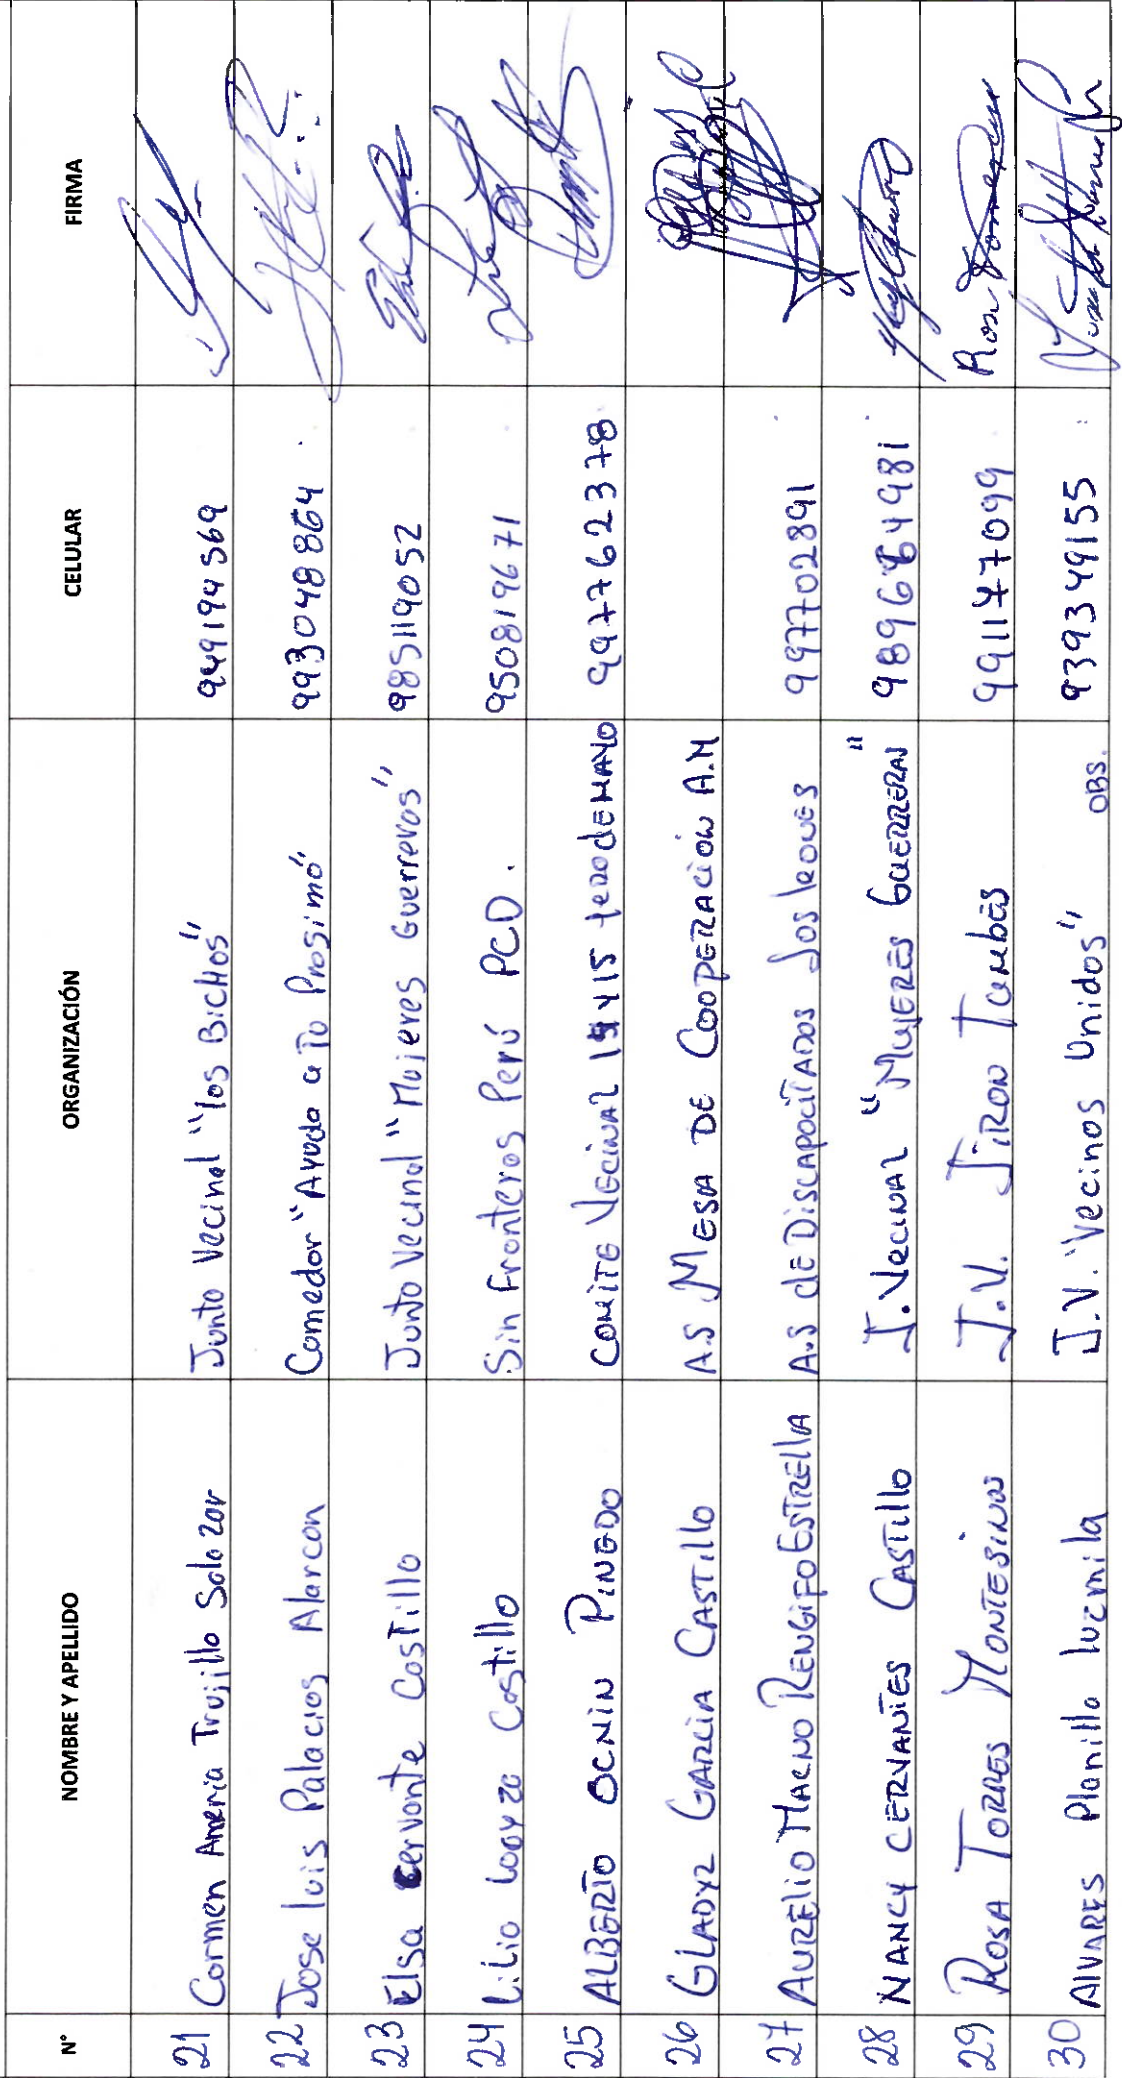 N° NOMBRE Y APELLIDO ORGANIZACIÓN CELULAR FIRMA
21 Carmen Trujillo Solozor Junto Vecinal "los BicHos" 949194569
22 Jose luis Palacios Alarcon Comedor "Ayuda a Tu Prosimó" 993048864
23 Elsa Cervante Costillo Junto Vecinal "Mujeres Guerreros" 985119052
24 Lilio Loayzo Costillo Sin Fronteros Perú PCD. 950819671
25 ALBERTO OCNIN PINEDO COMITE VECINAL de MAYO 997762378
26 GLADYZ GARCIA CASTILLO A.S MESA DE COOPERACIÓN A.M
27 AURELIO RENGIFO ESTRELLA A.S dE DISCAPACITADOS Los leones 997702891
28 NANCY CERVANTES CASTILLO J. VECINAL "MUJERES GUERRERAS" 989664981
29 ROSA TORRES MONTESINOS J.V. JiRON TUMBES 991147099
30 AlVARES Planillo luzmila J.V. "Vecinos Unidos" OBS. 939349155